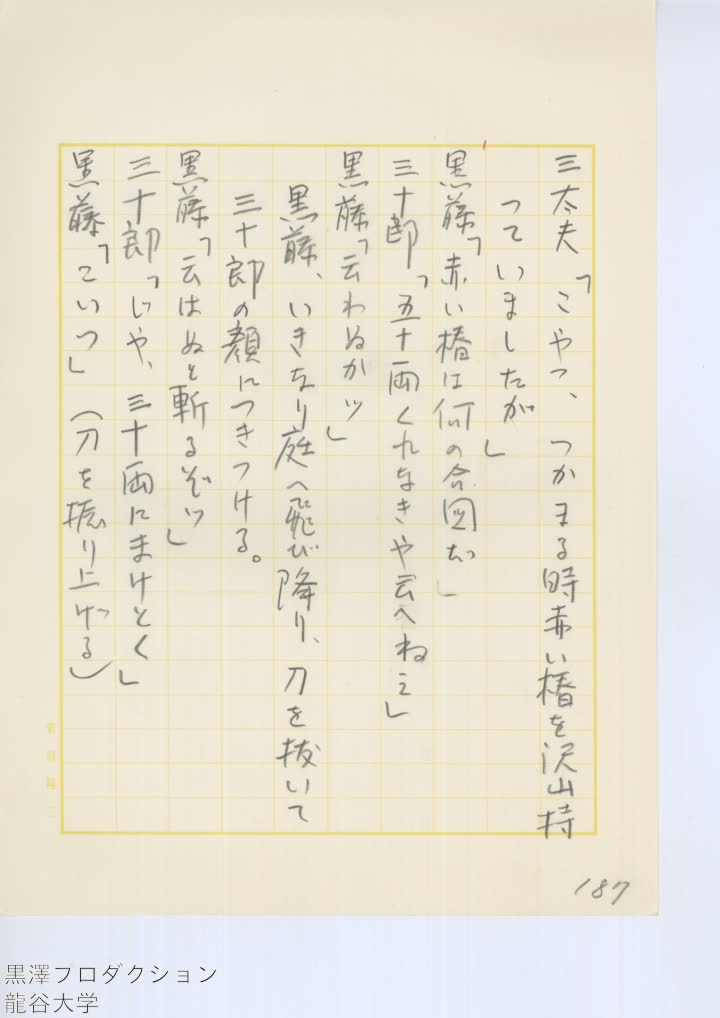 三太夫「こやつ、つかまる時赤い椿を沢山持
っていましたが」
黒藤「赤い椿は何の合図だ」
三十郎「五十両くれなきや云へねえ」
黒藤「云わぬかッ」
黒藤、いきなり庭へ飛び降り、刀を抜いて
三十郎の顔につきつける。
黒藤「云はぬと斬るぞッ」
三十郎「じや、三十両にまけとく」
黒藤「こいつ」（刀を振り上げる）
187
黒澤プロダクション
龍谷大学